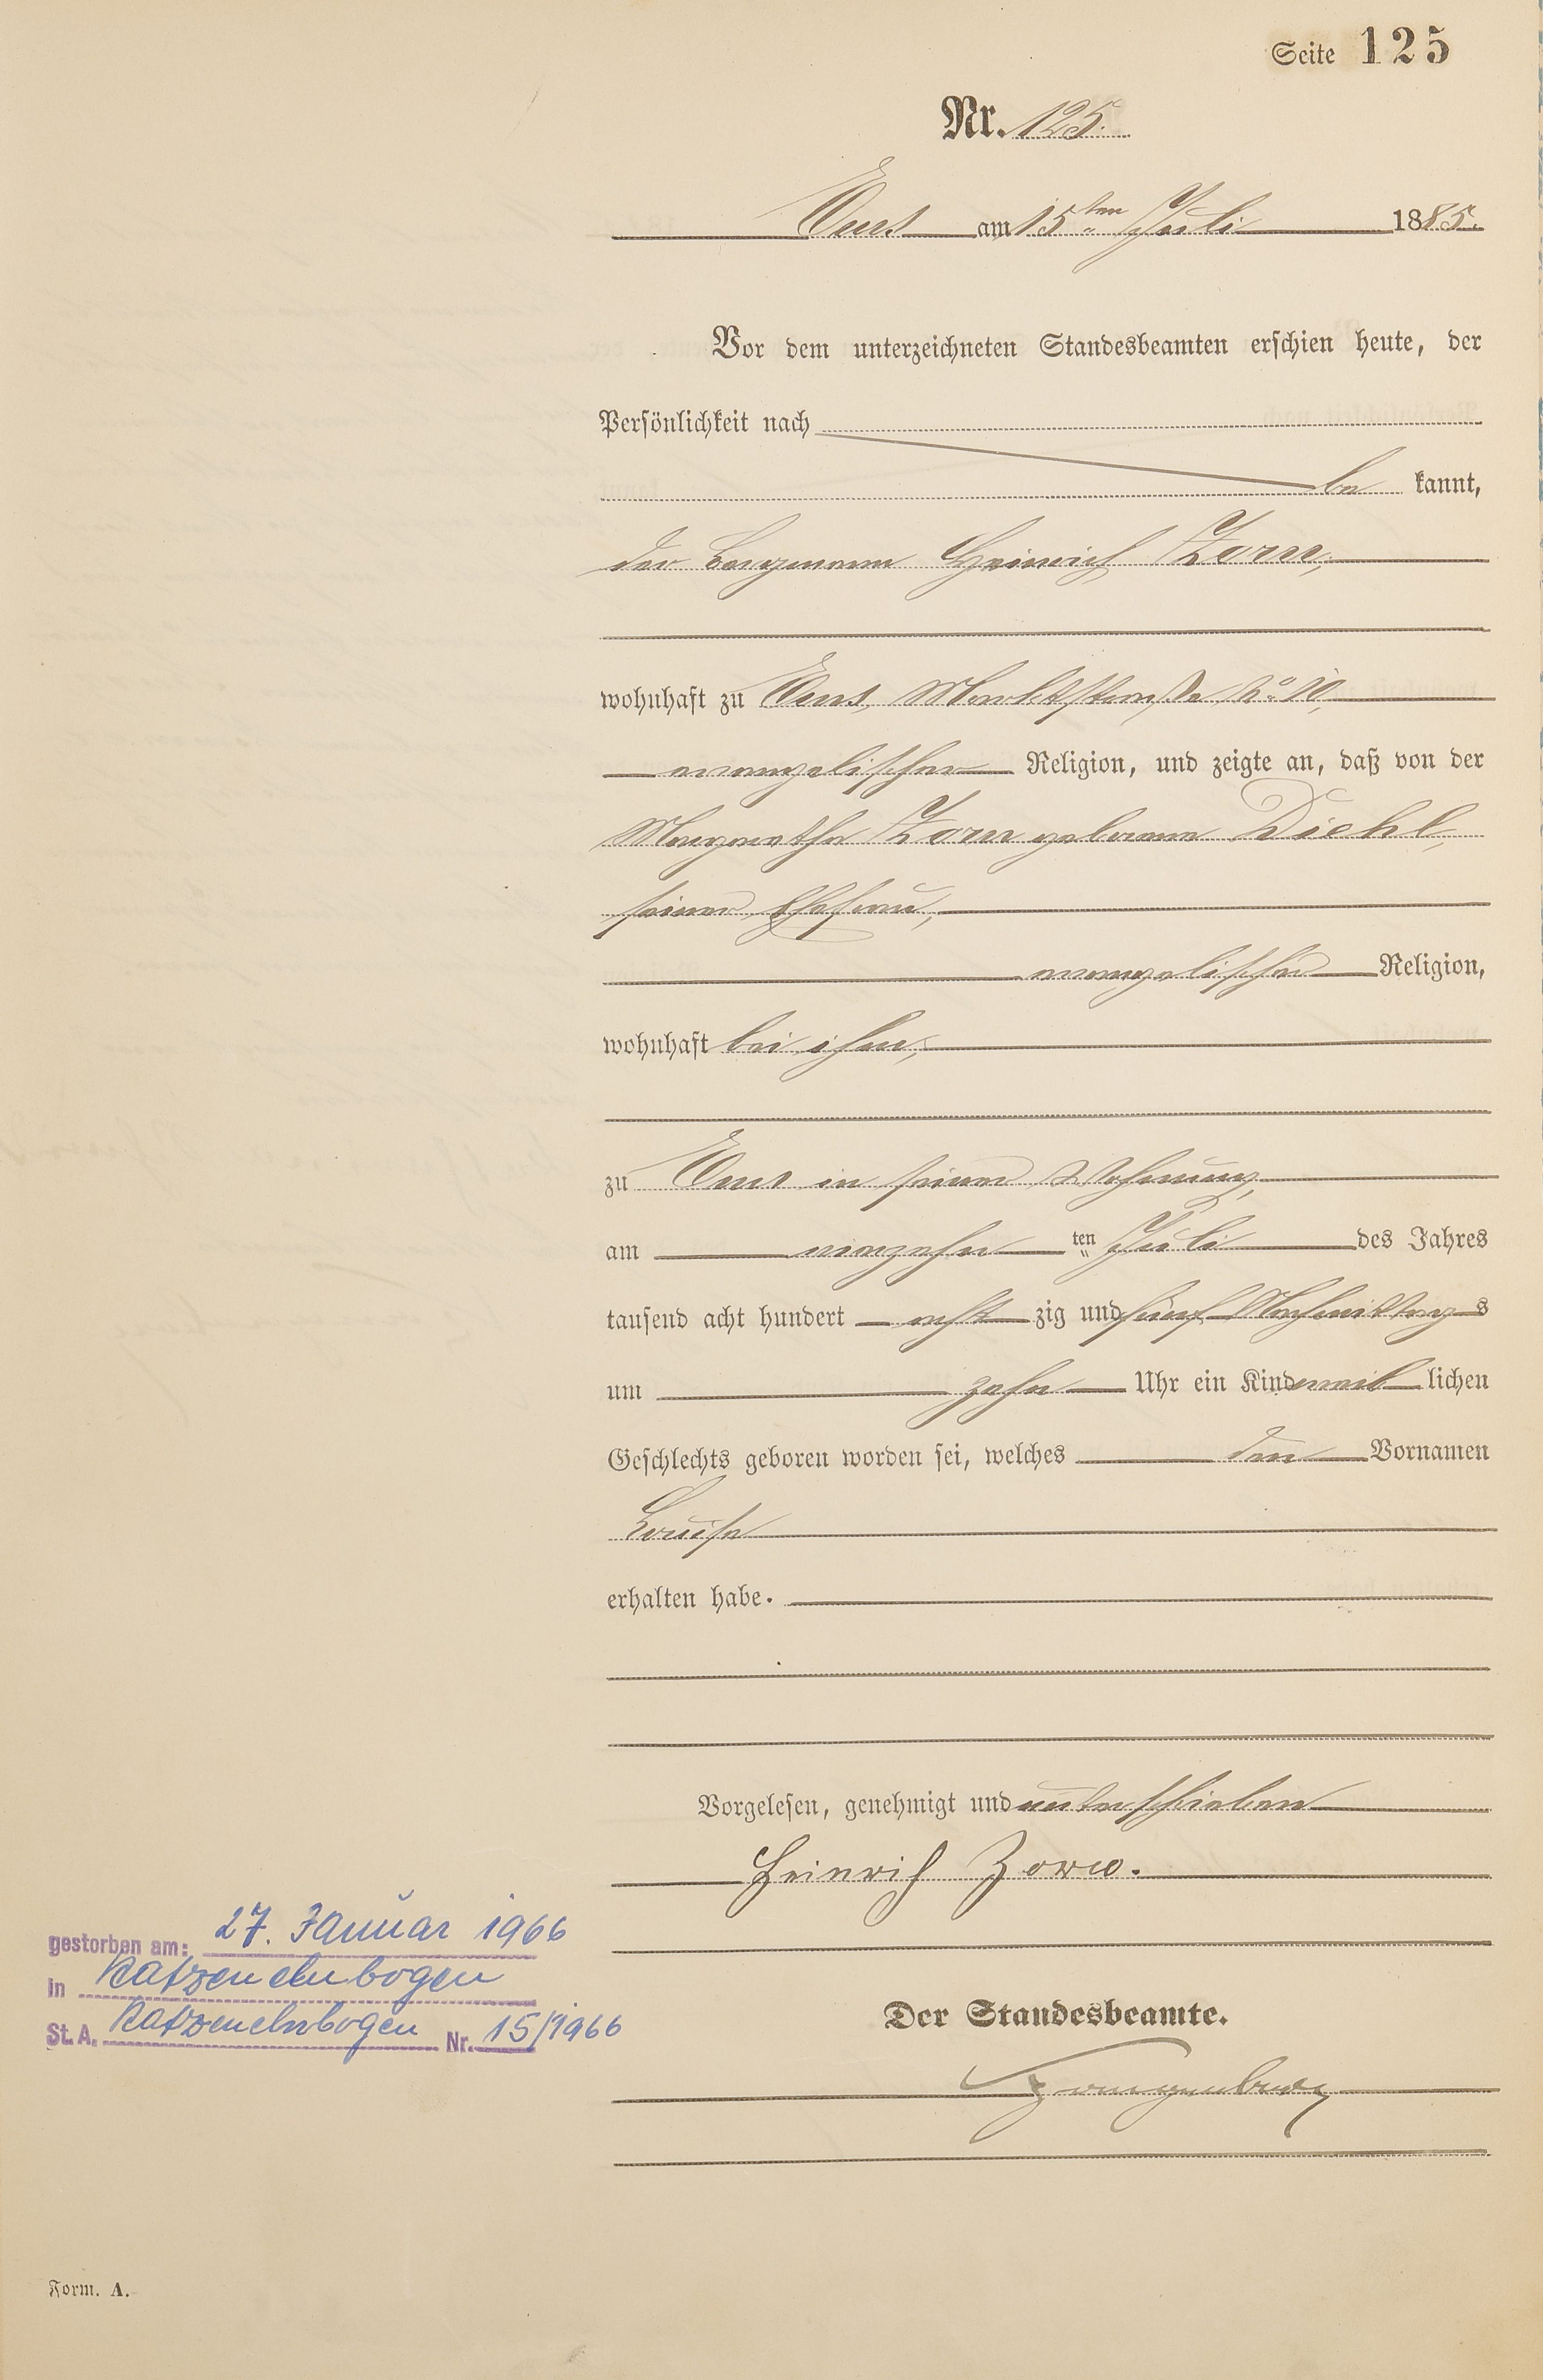 Seite 125
Nr. 125.
Ems am 15ten Juli 1885.
Vor dem unterzeichneten Standesbeamten erschien heute, der
Persönlichkeit nach
be kannt,
der Bergmann Heinrich Zorn,
wohnhaft zu Ems, Marktstraße No 10,
evangelischer Religion, und zeigte an, daß von der
Margarethe Zorn geborene Diehl,
seiner Ehefrau,
evangelischer Religion,
wohnhaft bei ihm,
zu Ems in seiner Wohnung,
am vierzehn ten Juli des Jahres
tausend acht hundert acht zig und fünf Nachmittags
um zehn Uhr ein Kind weib lichen
Geschlechts geboren worden sei, welches den Vornamen
Louise
erhalten habe.
Vorgelesen, genehmigt und unterschrieben
Heinrich Zorn.
gestorben am: 27. Januar 1966
in Katzenelnbogen
St. A. Katzenelnbogen Nr. 15/1966
Der Standesbeamte.
Form. A.